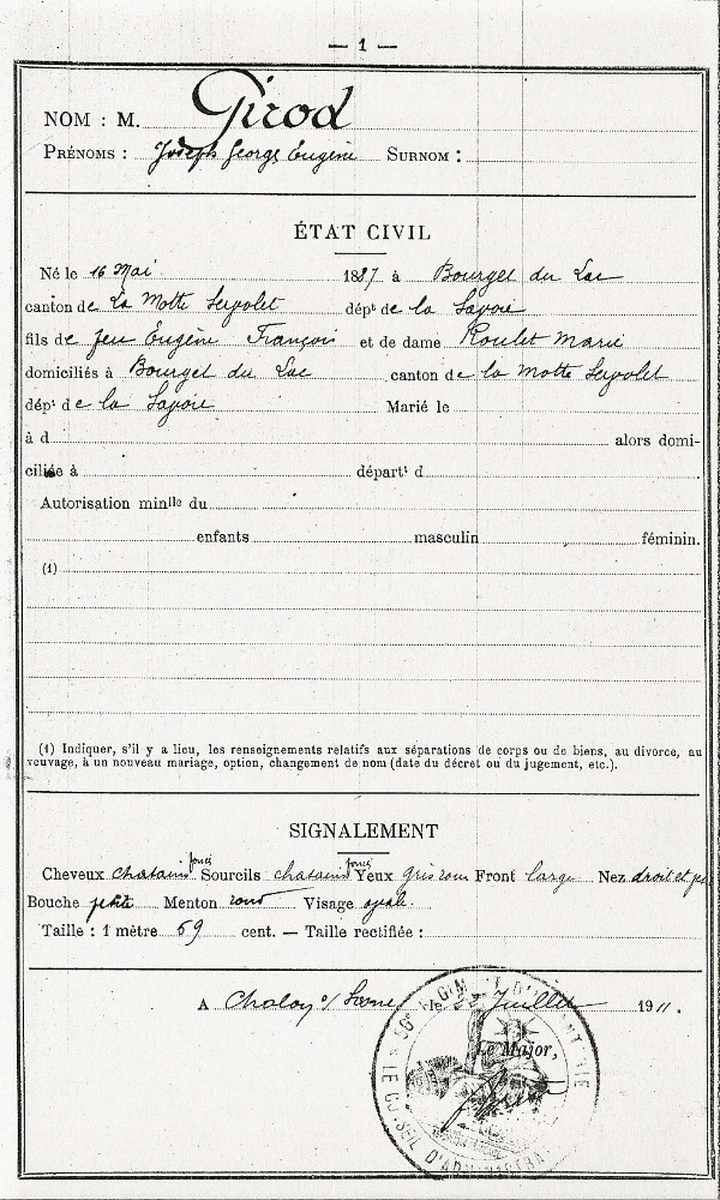 — 1 —
NOM : M. Girod
PRÉNOMS : Joseph George Eugène SURNOM :
ÉTAT CIVIL
Né le 16 Mai 1887 à Bourget du Lac
canton de La Motte Servolet dépt de la Savoie
fils de feu Eugène François et de dame Roulet Marie
domiciliés à Bourget du Lac canton de la Motte Servolet
dépt de la Savoie Marié le
à d alors domi-
ciliée à départt d
Autorisation minlle du
enfants masculin féminin.
(1)
(1) Indiquer, s'il y a lieu, les renseignements relatifs aux séparations de corps ou de biens, au divorce, au
veuvage, à un nouveau mariage, option, changement de nom (date du décret ou du jugement, etc.).
SIGNALEMENT
Cheveux chatains foncé Sourcils chatains foncé Yeux gris roux Front large Nez droit et
Bouche petite Menton rond Visage ovale.
Taille : 1 mètre 69 cent. — Taille rectifiée :
A Chalon s/ Saone le Juillet 1911.
Le Major,
56e RÉGIMENT D'INFANTERIE
LE CONSEIL